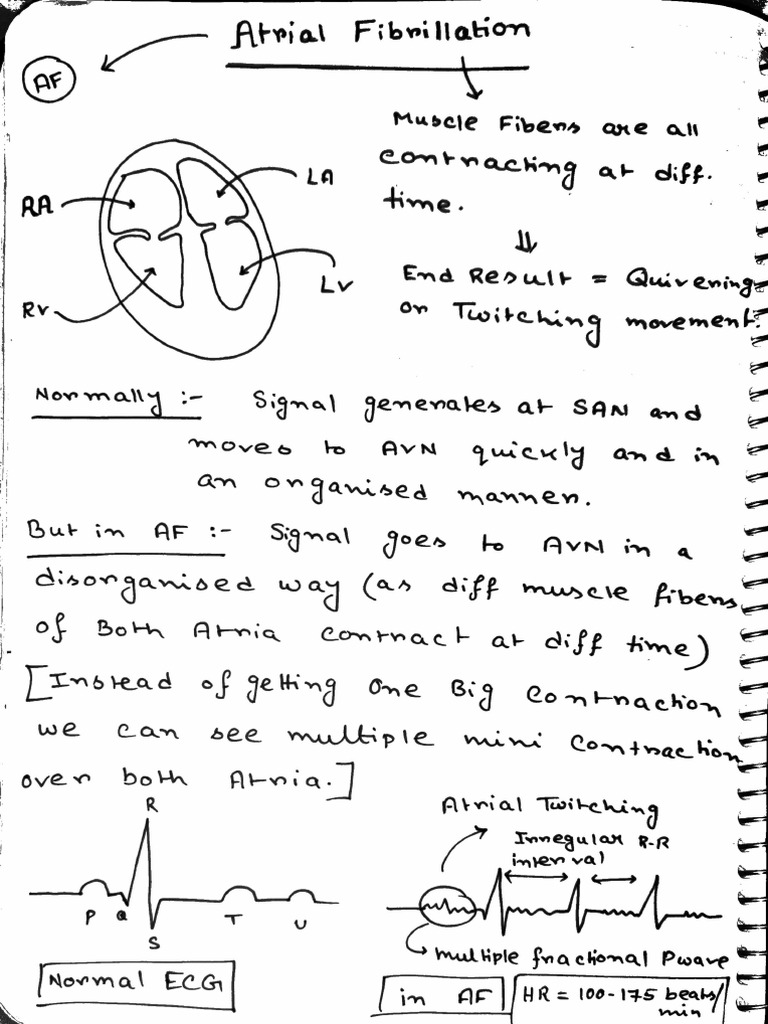 Atrial Fibrillation
AF
Muscle Fibers are all
contracting at diff.
time.
RA
LA
RV
LV
⇓
End Result = Quivering
or Twitching movement.
Normally :- Signal generates at SAN and
moves to AVN quickly and in
an organised manner.
But in AF :- Signal goes to AVN in a
disorganised way (as diff muscle fibers
of Both Atria contract at diff time)
[Instead of getting One Big Contraction
we can see multiple mini Contraction
over both Atria.]
R
P Q
S
T
U
Normal ECG
Atrial Twitching
Irregular R-R
interval
multiple fractional Pwave
in AF
HR = 100-175 beats/
min